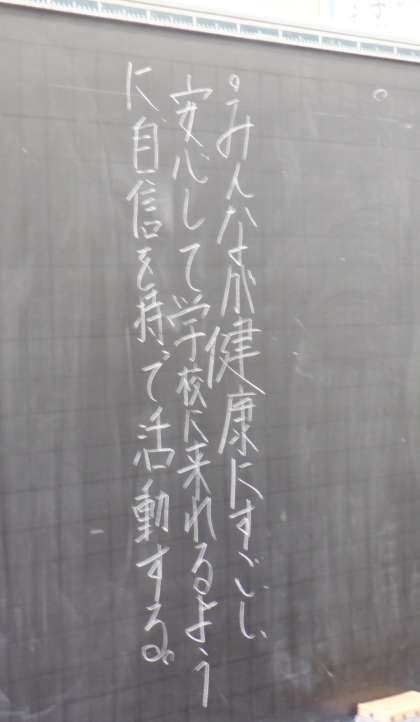 。みんなが健康にすごし、
安心して学校に来れるよう
に自信を持って活動する。